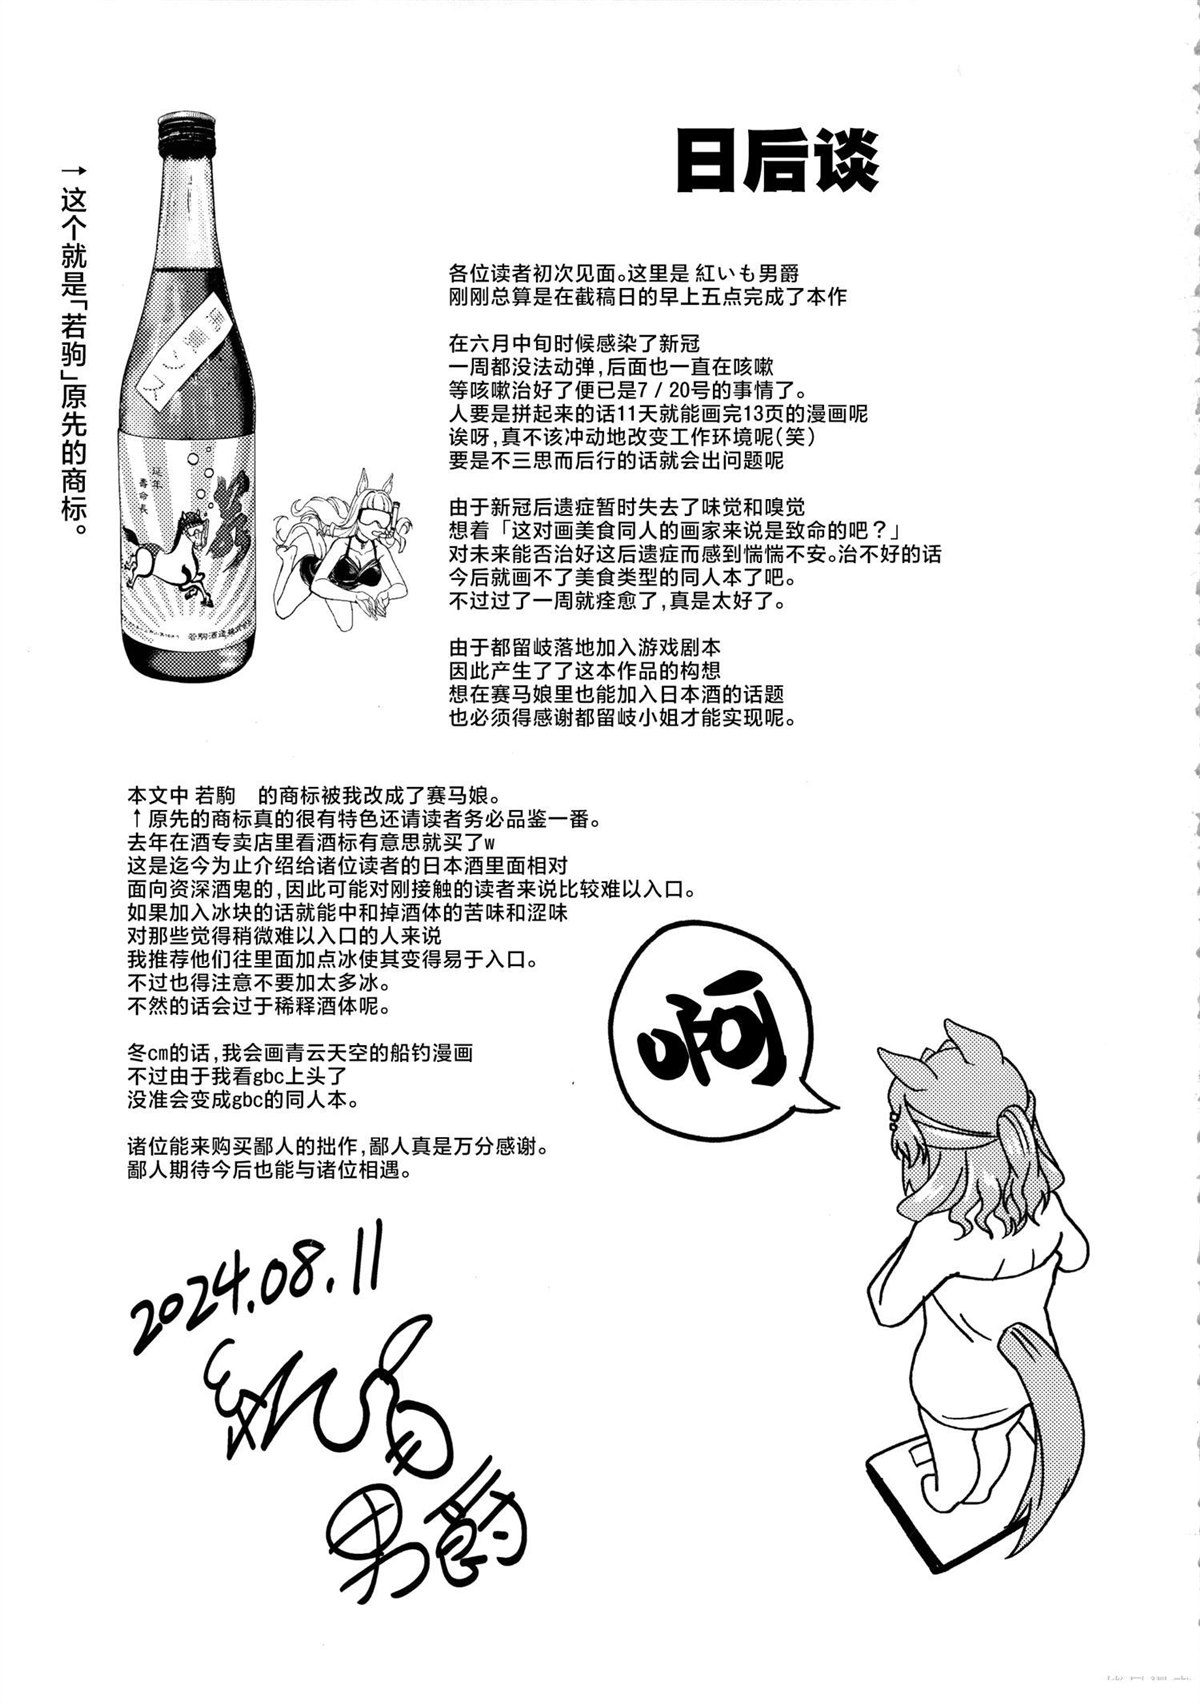 日后谈
→这个就是「若驹」原先的商标。
延年
壽命長
若駒酒造株式会社
各位读者初次见面。这里是 紅いも男爵
刚刚总算是在截稿日的早上五点完成了本作
在六月中旬时候感染了新冠
一周都没法动弹,后面也一直在咳嗽
等咳嗽治好了便已是7/20号的事情了。
人要是拼起来的话11天就能画完13页的漫画呢
诶呀,真不该冲动地改变工作环境呢(笑)
要是不三思而后行的话就会出问题呢
由于新冠后遗症暂时失去了味觉和嗅觉
想着「这对画美食同人的画家来说是致命的吧?」
对未来能否治好这后遗症而感到惴惴不安。治不好的话
今后就画不了美食类型的同人本了吧。
不过过了一周就痊愈了,真是太好了。
由于都留岐落地加入游戏剧本
因此产生了了这本作品的构想
想在赛马娘里也能加入日本酒的话题
也必须得感谢都留岐小姐才能实现呢。
本文中 若駒 的商标被我改成了赛马娘。
↑原先的商标真的很有特色还请读者务必品鉴一番。
去年在酒专卖店里看酒标有意思就买了w
这是迄今为止介绍给诸位读者的日本酒里面相对
面向资深酒鬼的,因此可能对刚接触的读者来说比较难以入口。
如果加入冰块的话就能中和掉酒体的苦味和涩味
对那些觉得稍微难以入口的人来说
我推荐他们往里面加点冰使其变得易于入口。
不过也得注意不要加太多冰。
不然的话会过于稀释酒体呢。
冬cm的话,我会画青云天空的船钓漫画
不过由于我看gbc上头了
没准会变成gbc的同人本。
诸位能来购买鄙人的拙作,鄙人真是万分感谢。
鄙人期待今后也能与诸位相遇。
啊
2024.08.11
紅いも
男爵